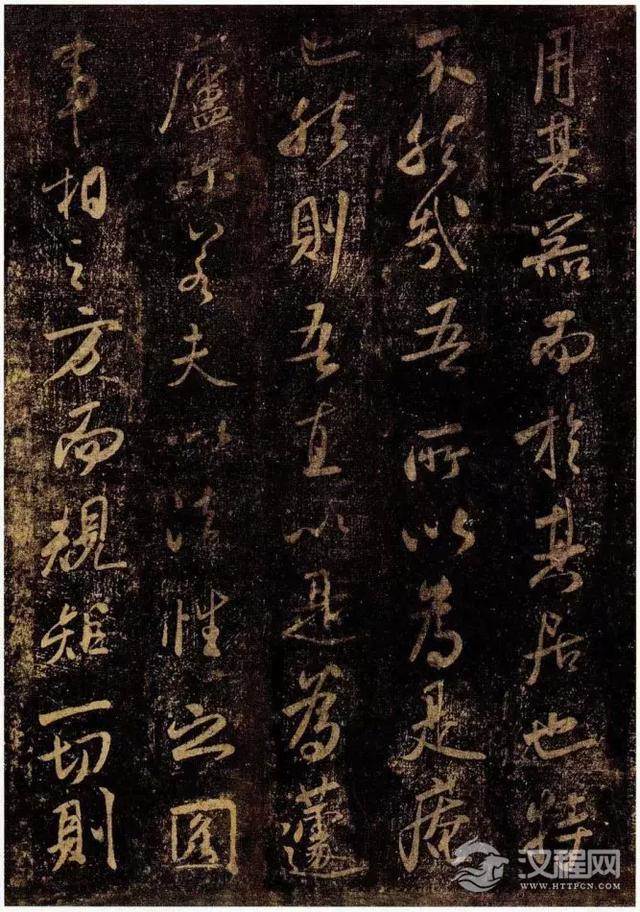 用其器而於其居也特
不然哉吾所以為是庵
也然則吾直以是為蘧
廬尔若夫以法性之圓
事相之方而規矩一切則
汉程网
WWW.HTTPCN.COM